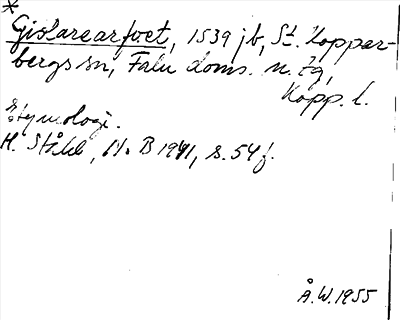 *
Gislarearfvet, 1539 jb, St. Koppar-
bergs sn, Falu doms. n. tg,
Kopp. l.
Etymologi.
H. Ståhl, B 1941, s. 54 f.
Å.W. 1955